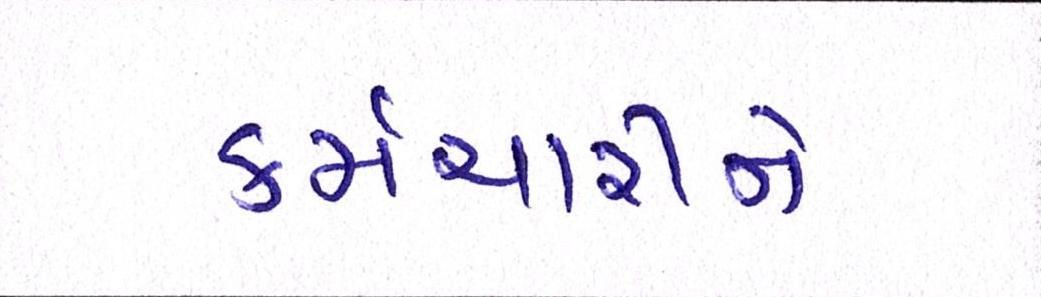 કર્મચારીને